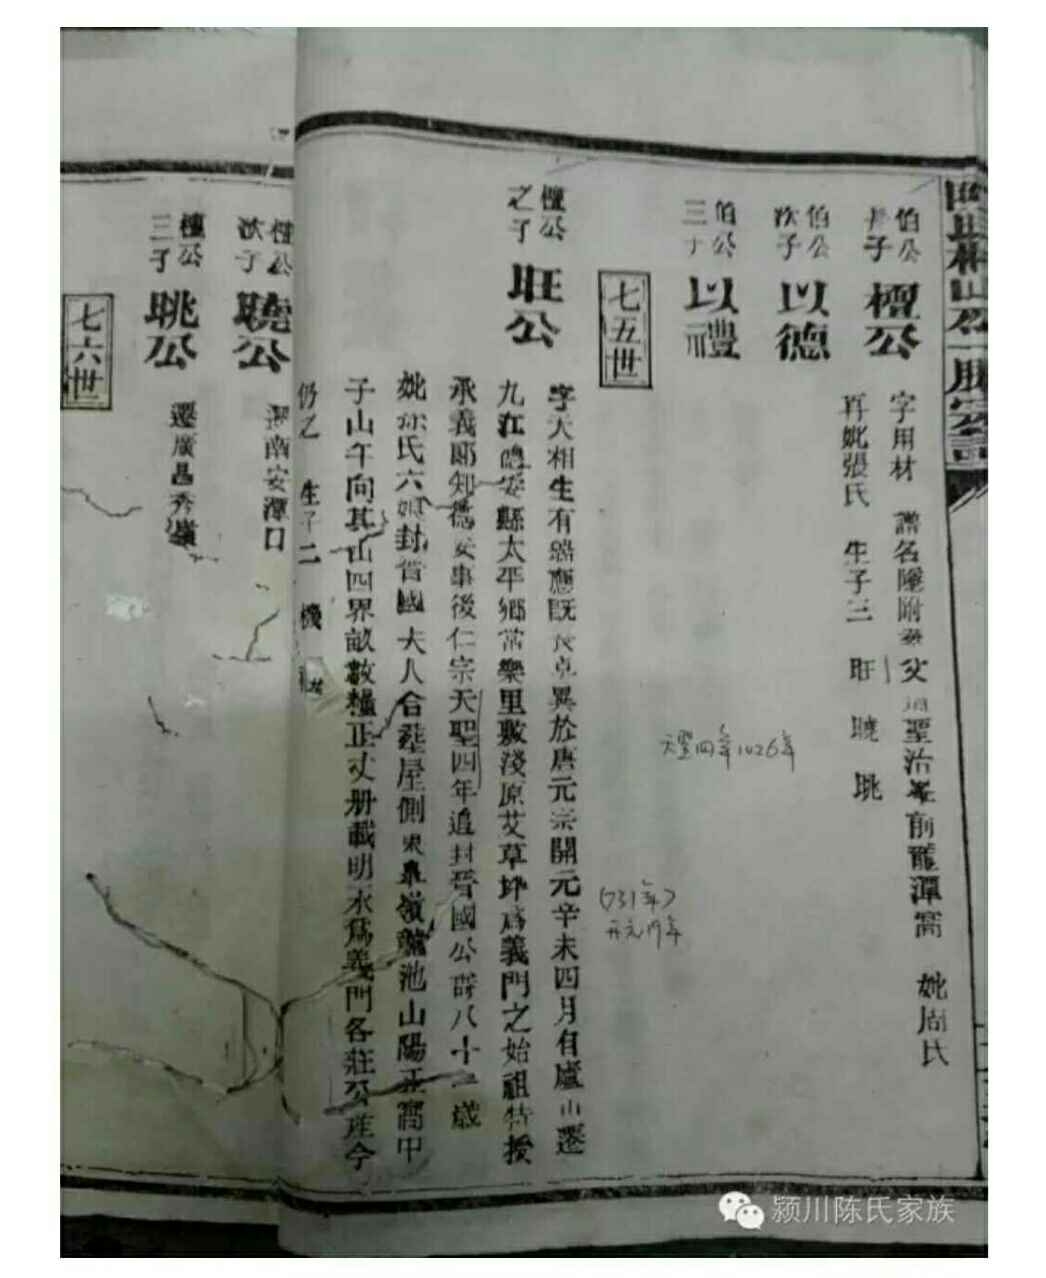 伯公長子
檀公
字用材 譜名隆附葬父 聖治峯前龍潭窩 妣周氏
再妣張氏 生子三 旺 曉 眺
伯公次子
以德
伯公三子
以禮
天聖四年1026年
七五世
(731年)
开元19年
檀公之子
旺公
字大相生有 應既長卓異於唐元宗開元辛未四月自廬山遷
九江 安縣太平鄉常樂里敷淺原艾草坪爲義門之始祖特授
承義郎知德安事後仁宗天聖四年追封晉國公 八十 歲
妣 氏六娘封晉國夫人合塟屋側 嶺 池山陽正窩甲
子山午向其山四界畝數糧正丈册載明永爲義門各莊公産今
仍之 生子二 機
檀公次子
曉公
遷南安潭口
檀公三子
眺公
遷廣昌秀嶺
七六世
颍川陈氏家族